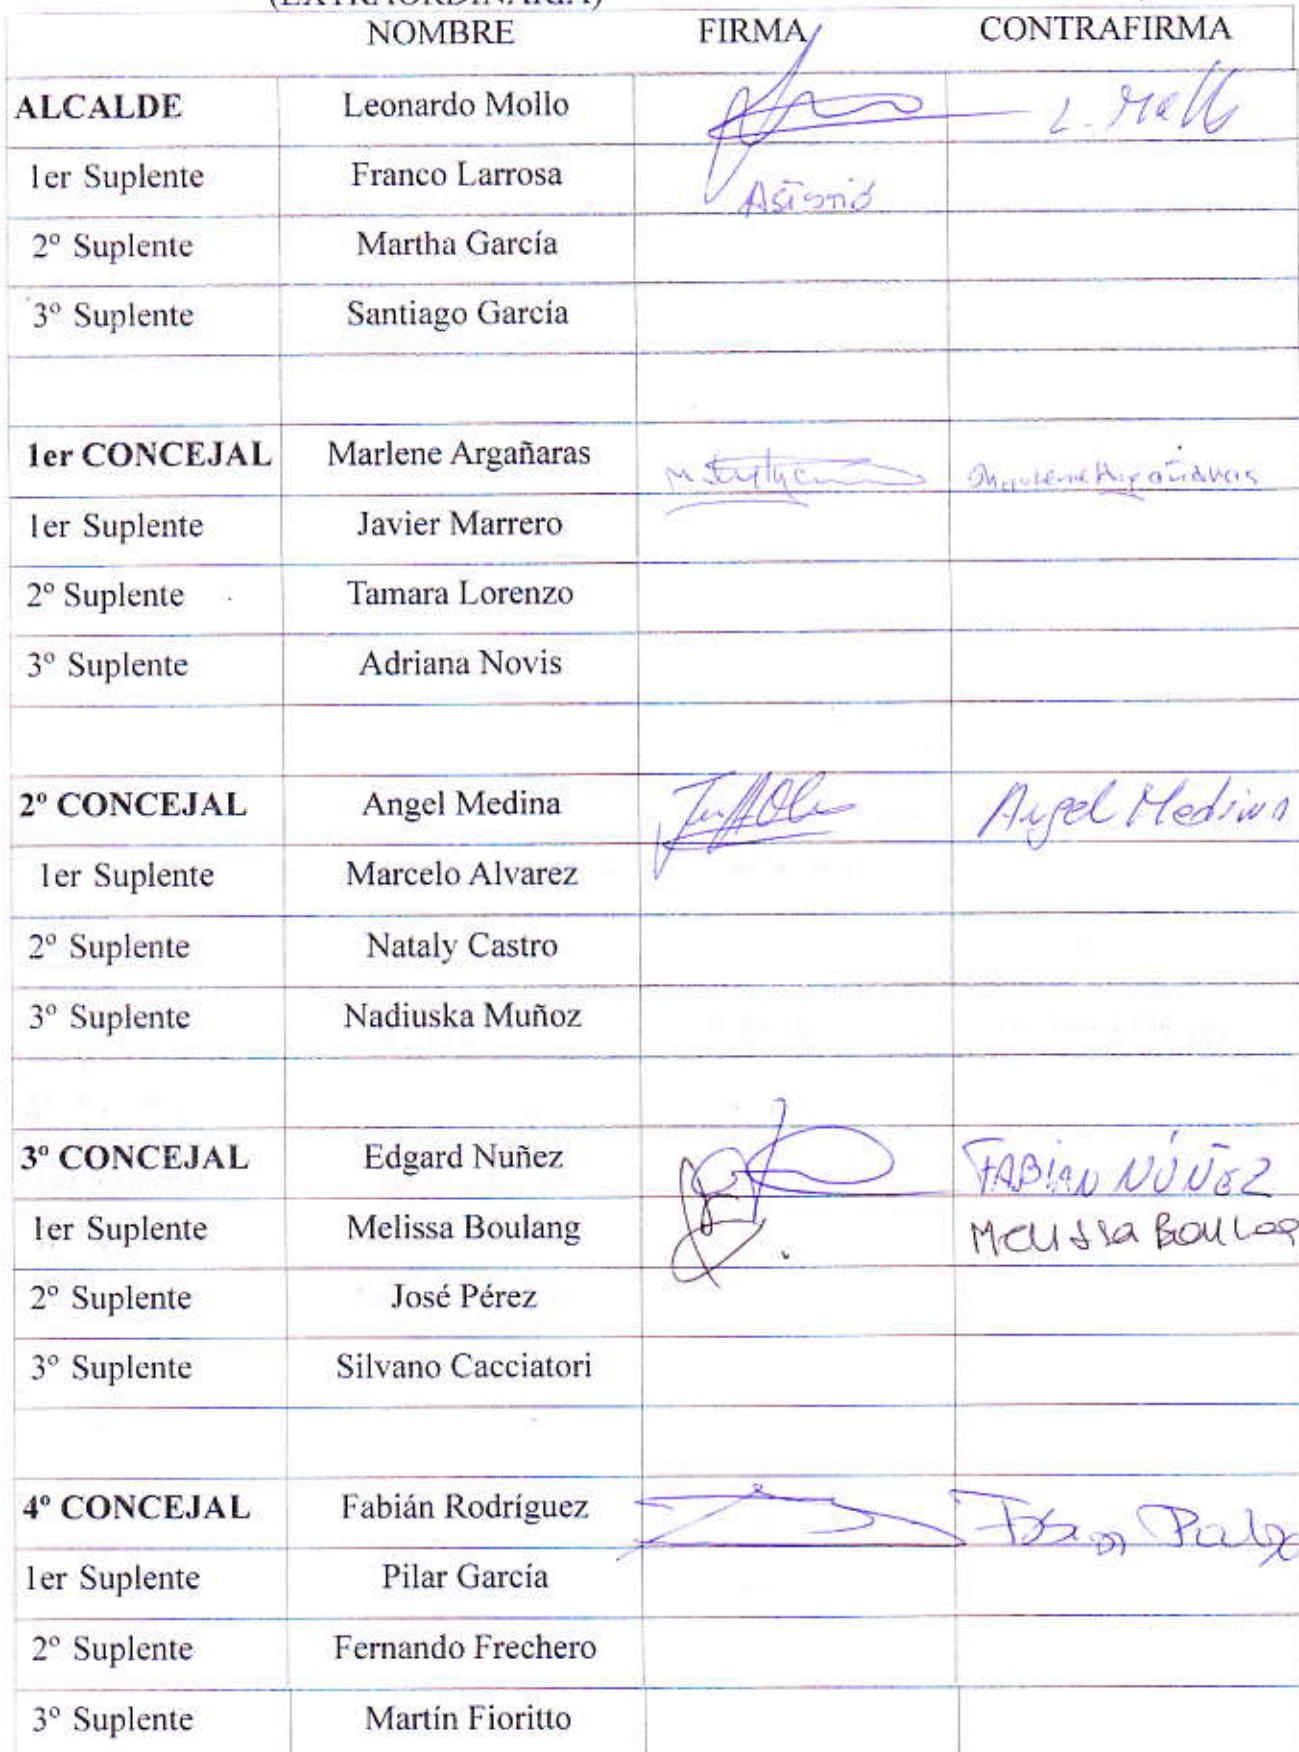 (EXTRAORDINARIA)
NOMBRE FIRMA CONTRAFIRMA
ALCALDE Leonardo Mollo L. Mollo
1er Suplente Franco Larrosa Asistió
2º Suplente Martha García
3º Suplente Santiago García
1er CONCEJAL Marlene Argañaras Marlene Argañaras
1er Suplente Javier Marrero
2º Suplente Tamara Lorenzo
3º Suplente Adriana Novis
2º CONCEJAL Angel Medina Angel Medina
1er Suplente Marcelo Alvarez
2º Suplente Nataly Castro
3º Suplente Nadiuska Muñoz
3º CONCEJAL Edgard Nuñez FABIAN NÚÑEZ
1er Suplente Melissa Boulang Melissa
2º Suplente José Pérez
3º Suplente Silvano Cacciatori
4º CONCEJAL Fabián Rodríguez
1er Suplente Pilar García
2º Suplente Fernando Frechero
3º Suplente Martín Fioritto